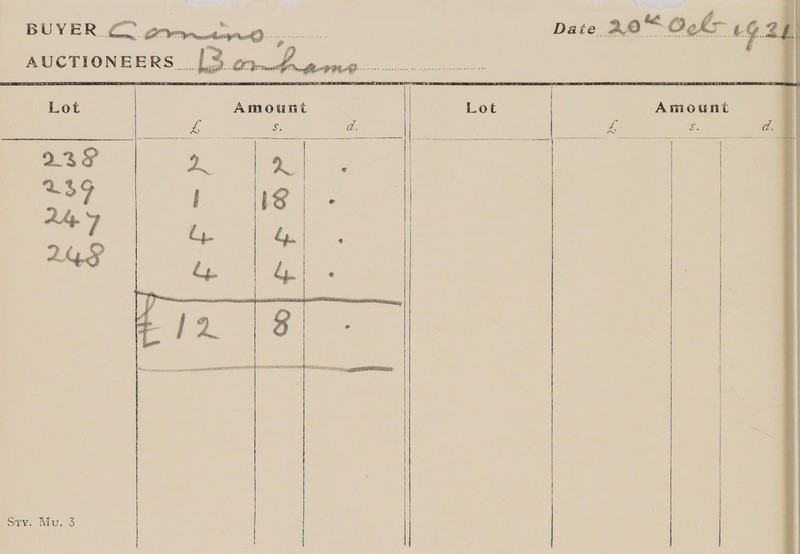 BUYER Comins, Date 20th Oct 1921
AUCTIONEERS Bonhams
Lot Amount Lot Amount
£ s. d. £ s. d.
238 2 2 .
239 1 18 .
247 4 4 .
248 4 4 .
£12 8 .
Sty. Mu. 3